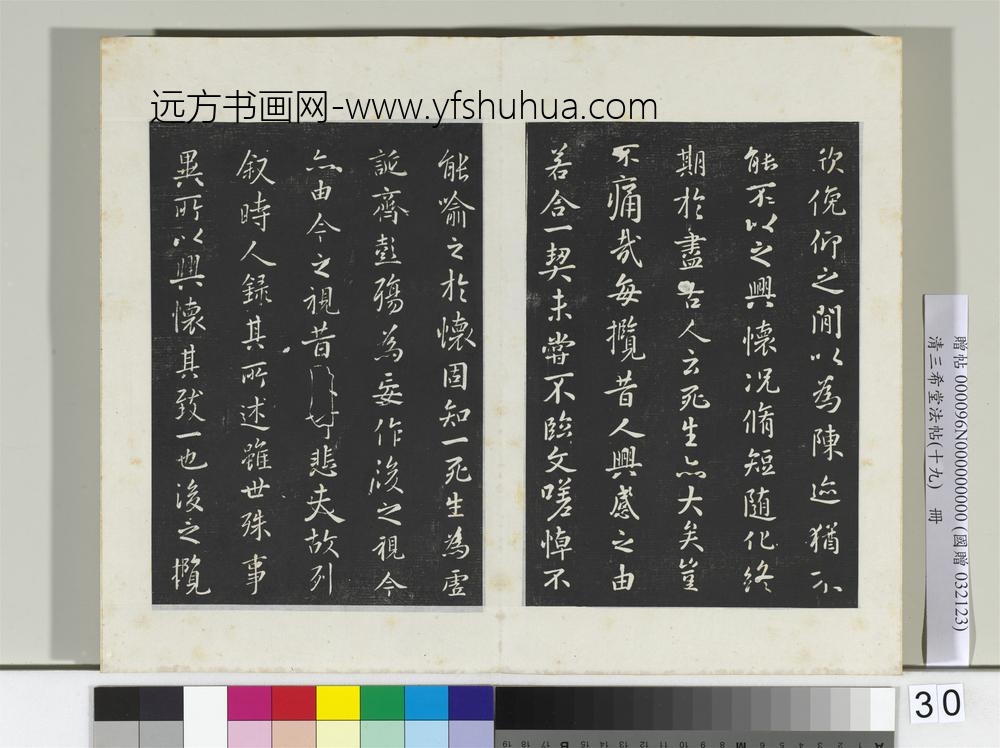 远方书画网-www.yfshuhua.com
欣俛仰之間以為陳迹猶不
能不以之興懷况脩短隨化終
期於盡古人云死生亦大矣豈
不痛哉每攬昔人興感之由
若合一契未嘗不臨文嗟悼不
能喻之於懷固知一死生為虛
誕齊彭殤為妄作後之視今
亦由今之視昔悲夫故列
敘時人錄其所述雖世殊事
異所以興懷其致一也後之攬
贈帖 000096N000000000 (國贈 032123)
清三希堂法帖(十九) 冊
30